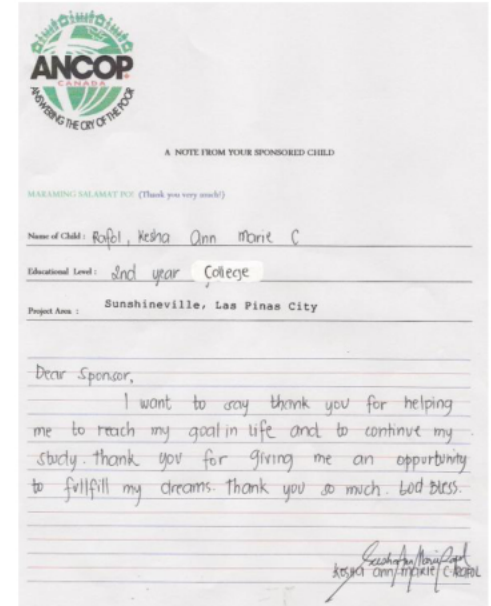 ANCOP
CANADA
ANSWERING THE CRY OF THE POOR
A NOTE FROM YOUR SPONSORED CHILD
MARAMING SALAMAT PO! (Thank you very much!)
Name of Child : Rafol, Kesha Ann Marie C
Educational Level : 2nd year College
Project Area : Sunshineville, Las Pinas City
Dear Sponsor,
I want to say thank you for helping
me to reach my goal in life and to continue my
study. thank you for giving me an opportunity
to fullfill my dreams. thank you so much. God Bless.
Kesha Ann Marie C. RAFOL